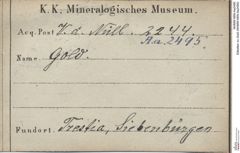 K. K. Mineralogisches Museum.
Acq. Post V. d. Nüll. 2244.
Aa. 2495.
Name. Gold.
Fundort. Trestia, Siebenbürgen